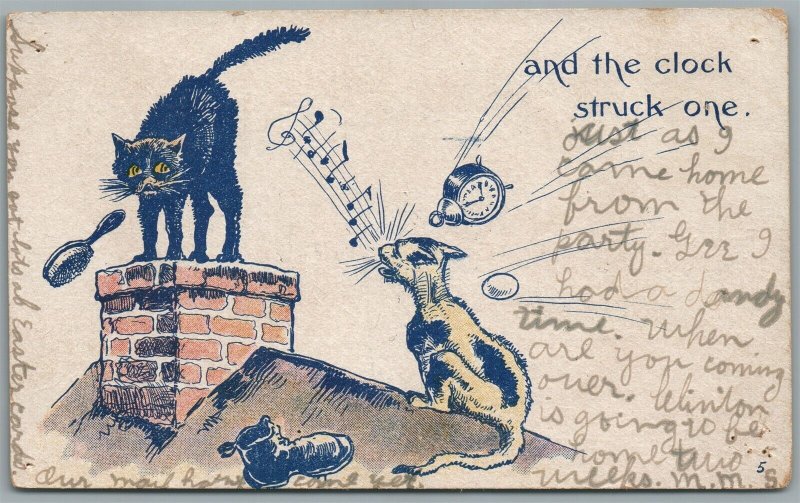 and the clock
struck one.
just as I
came home
from the
party. Gee I
had a dandy
time. When
are you coming
over. Clinton
is going to be
home two
weeks. M.M.S
5
Our mail has come yet
Suppose you got lots of Easter cards